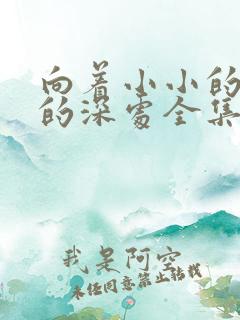 向着小小的
的深处全集
我是阿空
未经同意禁止转载